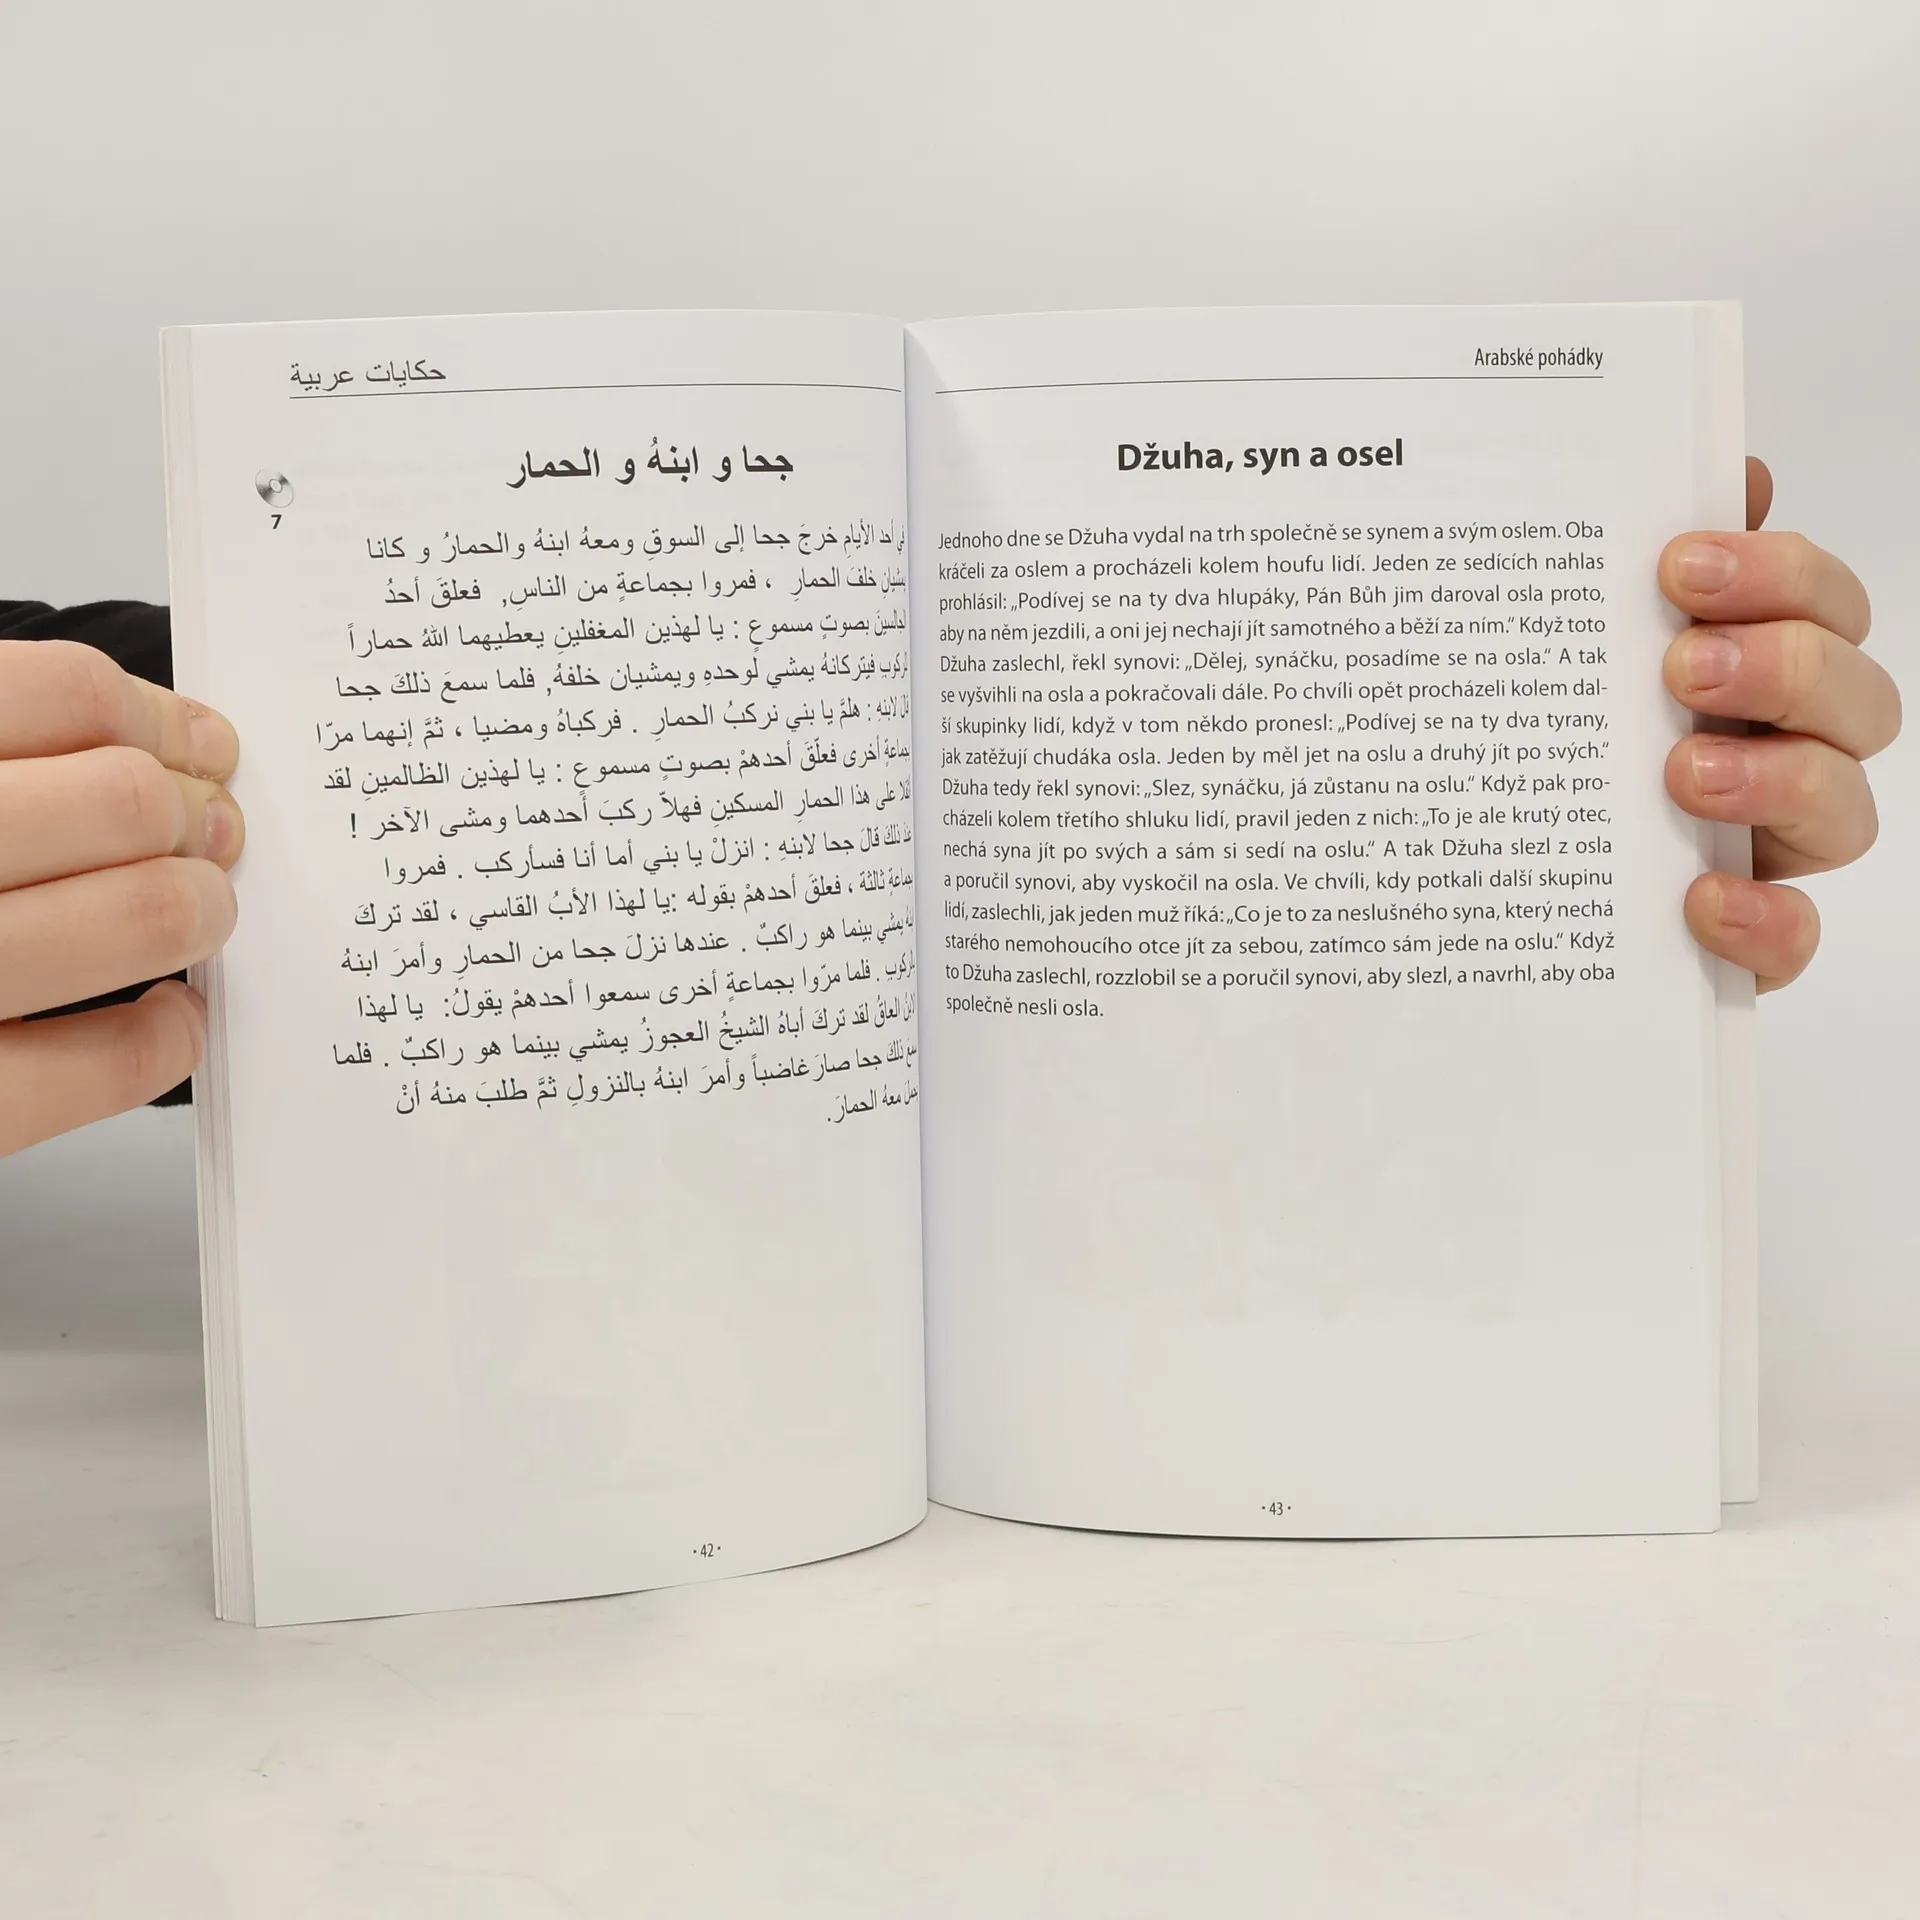 حكايات عربية
جحا و ابنهُ و الحمار
7
في أحد الأيامِ خرجَ جحا إلى السوقِ ومعهُ ابنهُ والحمارُ و كانا
يمشيانِ خلفَ الحمارِ ، فمروا بجماعةٍ من الناسِ, فعلقَ أحدُ
الجالسينَ بصوتٍ مسموعٍ : يا لهذين المغفلينِ يعطيهما اللهُ حماراً
للركوبِ فيتركانهُ يمشي لوحدهِ ويمشيان خلفهُ, فلما سمعَ ذلكَ جحا
قالَ لابنهِ : هلمَّ يا بني نركبُ الحمارِ . فركباهُ ومضيا ، ثمَّ إنهما مرّا
بجماعةٍ أخرى فعلّقَ أحدهمْ بصوتٍ مسموعٍ : يا لهذين الظالمينِ لقد
أثقلا على هذا الحمارِ المسكينِ فهلاّ ركبَ أحدهما ومشى الآخر !
عند ذلكَ قالَ جحا لابنهِ : انزلْ يا بني أما أنا فسأركب . فمروا
بجماعةٍ ثالثة ، فعلقَ أحدهمْ بقوله :يا لهذا الأبُ القاسي ، لقد تركَ
ابنهُ يمشي بينما هو راكبٌ . عندها نزلَ جحا من الحمارِ وأمرَ ابنهُ
بالركوبِ . فلما مرّوا بجماعةٍ أخرى سمعوا أحدهمْ يقولُ: يا لهذا
الابنُ العاقُ لقد تركَ أباهُ الشيخُ العجوزُ يمشي بينما هو راكبٌ . فلما
سمعَ ذلكَ جحا صارَ غاضباً وأمرَ ابنهُ بالنزولِ ثمَّ طلبَ منهُ أنْ
يحملَ معهُ الحمارَ.
· 42 ·
Arabské pohádky
Džuha, syn a osel
Jednoho dne se Džuha vydal na trh společně se synem a svým oslem. Oba
kráčeli za oslem a procházeli kolem houfu lidí. Jeden ze sedících nahlas
prohlásil: „Podívej se na ty dva hlupáky, Pán Bůh jim daroval osla proto,
aby na něm jezdili, a oni jej nechají jít samotného a běží za ním.“ Když toto
Džuha zaslechl, řekl synovi: „Dělej, synáčku, posadíme se na osla.“ A tak
se vyšvihli na osla a pokračovali dále. Po chvíli opět procházeli kolem dal-
ší skupinky lidí, když v tom někdo pronesl: „Podívej se na ty dva tyrany,
jak zatěžují chudáka osla. Jeden by měl jet na oslu a druhý jít po svých.“
Džuha tedy řekl synovi: „Slez, synáčku, já zůstanu na oslu.“ Když pak pro-
cházeli kolem třetího shluku lidí, pravil jeden z nich: „To je ale krutý otec,
nechá syna jít po svých a sám si sedí na oslu.“ A tak Džuha slezl z osla
a poručil synovi, aby vyskočil na osla. Ve chvíli, kdy potkali další skupinu
lidí, zaslechli, jak jeden muž říká: „Co je to za neslušného syna, který nechá
starého nemohoucího otce jít za sebou, zatímco sám jede na oslu.“ Když
to Džuha zaslechl, rozzlobil se a poručil synovi, aby slezl, a navrhl, aby oba
společně nesli osla.
· 43 ·